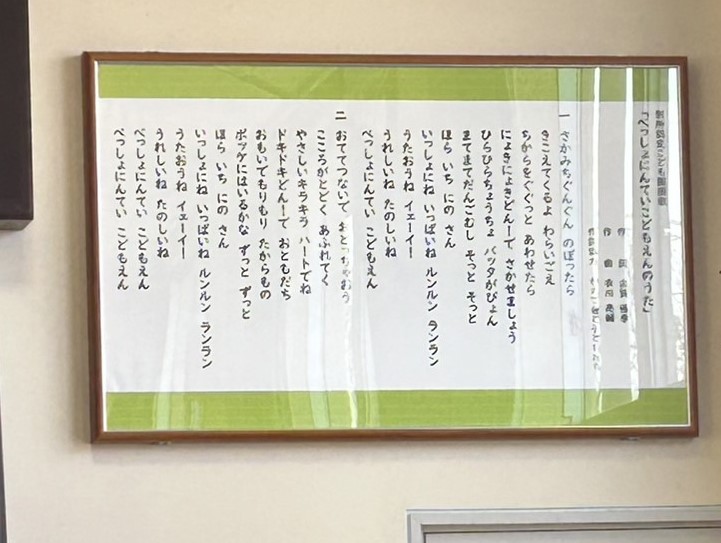 別所認定こども園園歌
「べっしょにんていこどもえんのうた」
作 詞
作 曲
一 さかみちぐんぐん のぼったら
きこえてくるよ わらいごえ
ちからをぐぐっと あわせたら
にょきにょきどんーで さかせましょう
ひらひらちょうちょ バッタがぴょん
まてまてだんごむし そっと そっと
ほら いち にの さん
いっしょにね いっぱいね ルンルン ランラン
うたおうね イェーイー
うれしいね たのしいね
べっしょにんてい こどもえん
二 おててつないで
こころがとどく あふれてく
やさしいキラキラ ハートでね
ドキドキどんーで おともだち
おもいでもりもり たからもの
ポッケにはいるかな ずっと ずっと
ほら いち にの さん
いっしょにね いっぱいね ルンルン ランラン
うたおうね イェーイー
うれしいね たのしいね
べっしょにんてい こどもえん
べっしょにんてい こどもえん